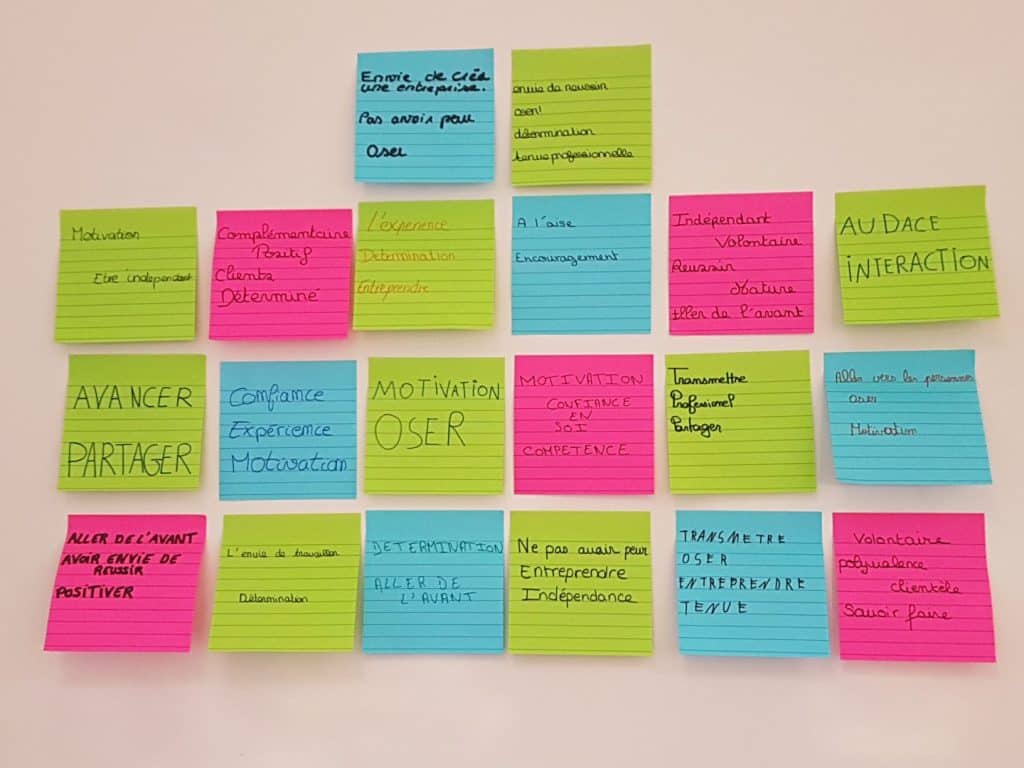 Envie de créa
une entreprise.
Pas avoir peur
Oser
envie de reussir
oser!
détermination
tenue professionnelle
Motivation
Etre independant
Complémentaire
Positif
Clients
Déterminé
L'éxperience
Determination
Entreprendre
A l'aise
Encouragement
Indépendant
Volontaire
Reussir
Mature
Aller de l'avant
AUDACE
iNTERACTiON
AVANCER
PARTAGER
Confiance
Expérience
Motivation
MOTiVATiON
OSER
MOTIVATION
CONFIANCE
EN
SOI
COMPETENCE
Transmettre
Profesionel
Partager
Aller vers les personnes
oser
Motivation
ALLER DE L'AVANT
AVOIR ENVIE DE
REUSSIR
POSITIVER
L'envie de travailler
Détermination
DETERMINATION
ALLER DE
L'AVANT
Ne pas avoir peur
Entreprendre
Indépendance
TRANSMETRE
OSER
ENTREPRENDRE
TENUE
Volontaire
polyvalence
clientèle
Savoir faire